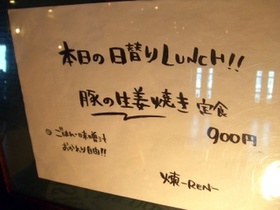 本日の日替りLUNCH!!
豚の生姜焼き定食
900円
◎ごはん・味噌汁
おかわり自由!!
煉-REN-